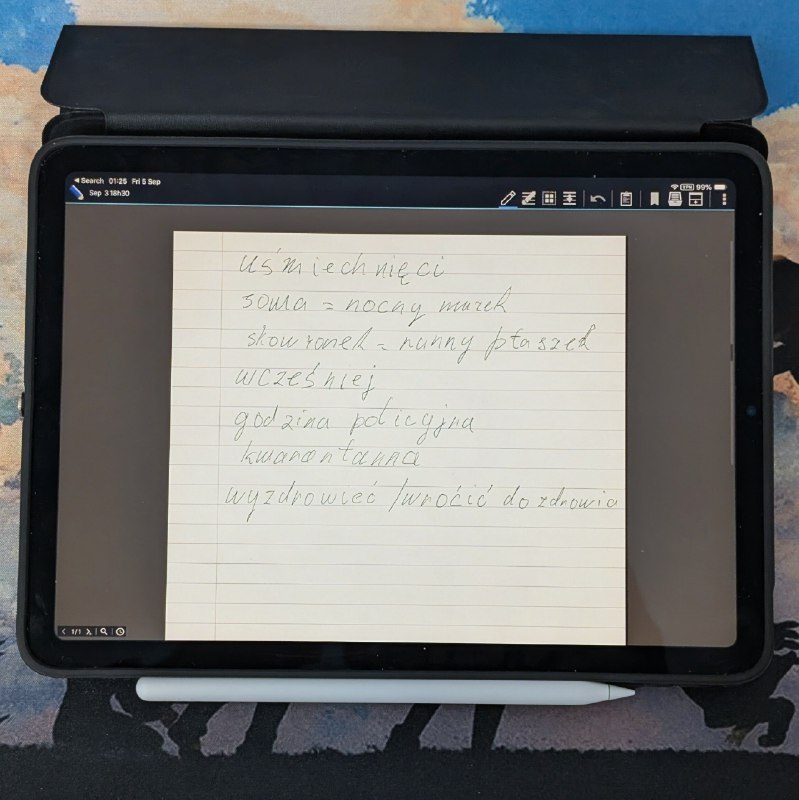 Search 01:25 Fri 5 Sep
VPN 99%
Sep 3 18h30
uśmiechnięci
sowa = nocny marek
skowronek = ranny ptaszek
wcześniej
godzina policyjna
kwarantanna
wyzdrowieć / wrócić do zdrowia
1/1